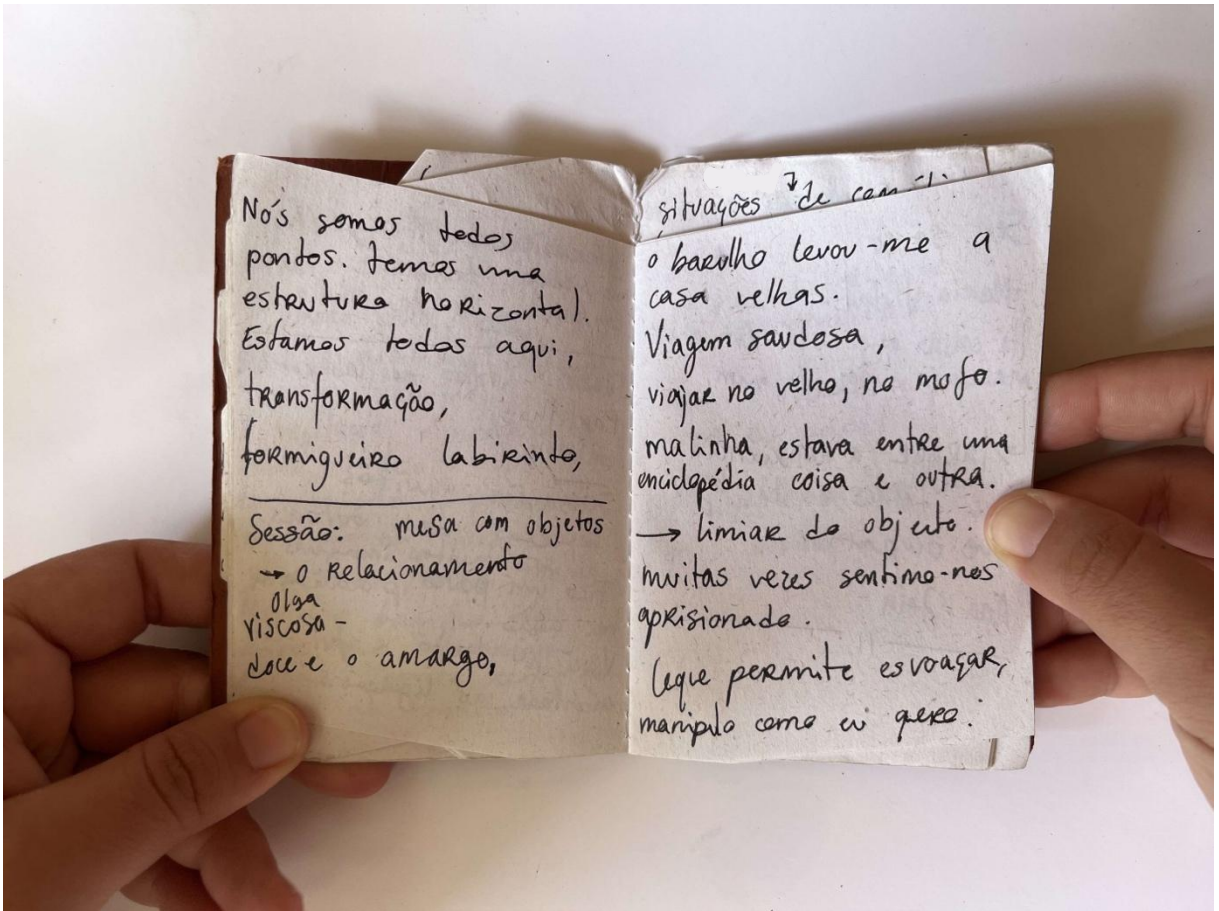 Nós somos todos
pontos. temos uma
estrutura horizontal.
Estamos todos aqui,
transformação,
formigueiro labirinto,
Sessão: mesa com objetos
→ o relacionamento
Olga
viscosa -
doce e o amargo,
situações de
o barulho levou-me a
casa velhas.
Viagem saudosa,
viajar no velho, no mofo.
malinha, estava entre uma
enciclopédia coisa e outra.
→ limiar do objeto.
muitas vezes sentimo-nos
aprisionado.
leque permite esvoaçar,
manipulo como eu quero.